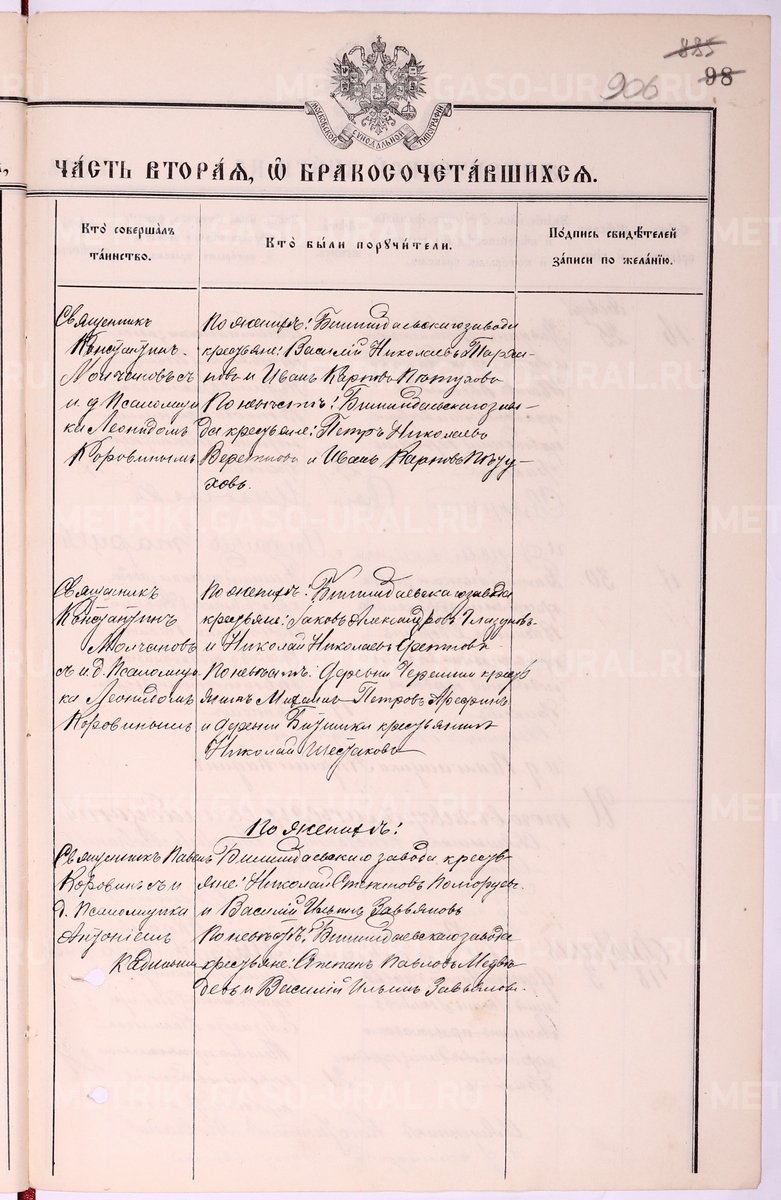 885
906 98
МОСКОВСКОЙ СУНОДАЛЬНОЙ ТИПОГРАФІИ
ЧА́СТЬ ВТОРА́Я, Ѡ҆ БРАКОСОЧЕТА́ВШИХСЯ.
Кто̀ соверша́лъ
та́инство.
Кто̀ бы́ли порꙋчи́тели.
По́дпись свидѣ́телей
за́писи по жела́нїю.
Священникъ
Константинъ
Молчановъ съ
и д псаломщи
ка Леонидомъ
Коровинымъ
По женихѣ: Билимбаевскаго завода
крестьяне: Василій Николаевъ
и Иванъ Карповъ Пѣтухова
По невѣстѣ: Билимбаевскаго заво-
да крестьяне: Петръ Николаевъ
и Иванъ Карповъ Пѣту-
ховъ.
Священникъ
Константинъ
Молчановъ
съ и.д. псаломщи
ка Леонидомъ
Коровинымъ
По женихѣ: Билимбаевскаго завода
крестьяне: Яковъ Александровъ Глазуновъ
и Николай Николаевъ
По невѣстѣ: деревни Черемши кресть
янинъ Михаилъ Петровъ Арефинъ
и деревни крестьянинъ
Николай Шестаковъ
Священникъ Павелъ
Коровинъ съ и
д. псаломщика
Антоніемъ
По женихѣ:
Билимбаевскаго завода кресть
яне: Николай Степановъ
и Василій Ильинъ Завьяловъ
По невѣстѣ: Билимбаевскаго завода
крестьяне: Степанъ Павловъ Медвѣ
девъ и Василій Ильинъ Завьяловъ.
METRIKI.GASO-URAL.RU